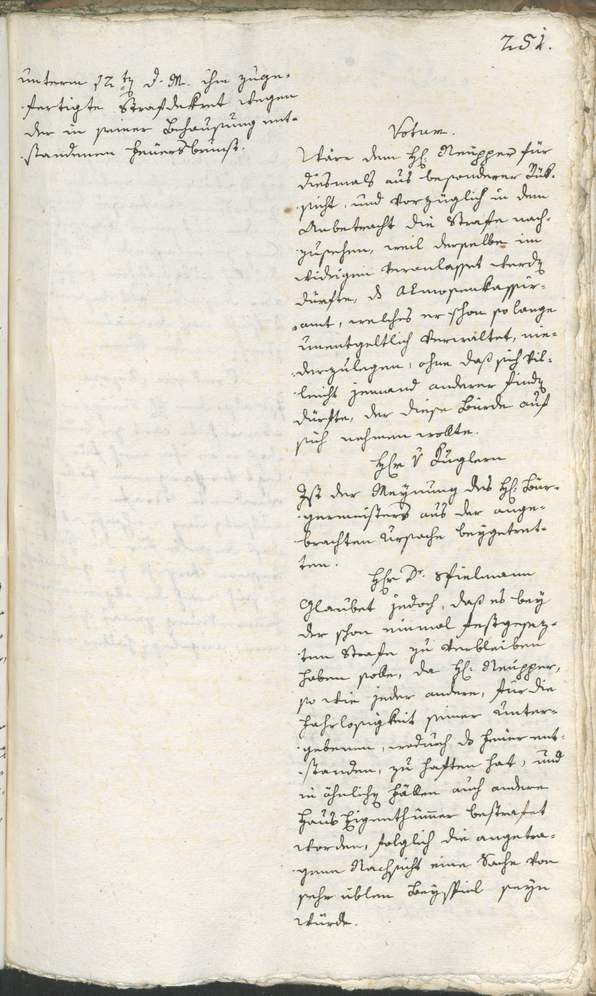 251.
unterm 12 t d. M. ihm zuge-
fertigte Strafdekret wegen
der in seiner Behausung ent-
standenen Feuersbrunst.
Votum.
Wäre dem H: Neupper für
diesmals aus besonderer Rük-
sicht, und vorzüglich in dem
Anbetracht die Strafe nach-
zusehen, weil derselbe im
widrigen veranlasset werdn
dürfte, ds Almosenkassier-
amt, welches er schon so lange
unentgeltlich verwaltet, nie-
derzulegen, ohne daß sich vil-
leicht jemand anderer findn
dürfte, der diese Bürde auf
sich nehmen wollte.
Hhr v Kuglern
Ist der Meynung des H: Bür-
germeisters aus der ange-
brachten Ursache beygetret-
ten.
Hhr Dr. Spielmann
Glaubet jedoch, daß es bey
der schon einmal festgesez-
ten Strafe zu verbleiben
haben solle, da H: Neupper,
so wie jeder andere, für die
Fahrlosigkeit seiner Unter-
gebenen, wodurch ds Feuer ent-
standen, zu haften hat, und
in ähnlichn Fällen auch andere
Haus Eigenthümer bestrafet
worden, folglich die angetra-
gene Nachsicht eine Sache von
sehr üblen Beyspiel seyn
würde.